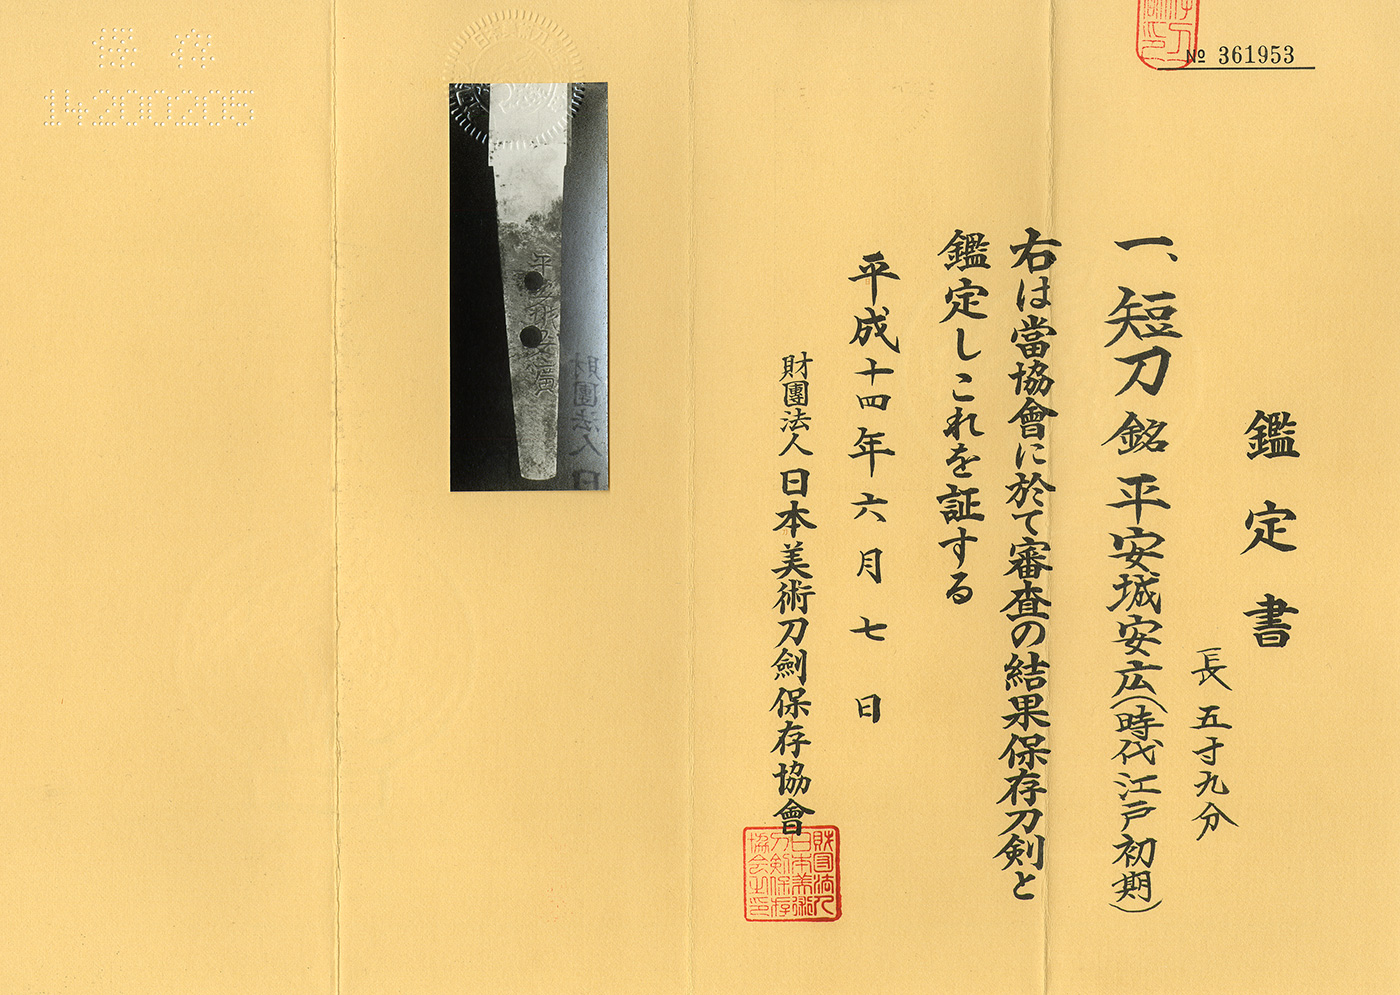 № 361953
鑑定書
長五寸九分
一、短刀 銘 平安城安広(時代江戸初期)
右は當協會に於て審査の結果保存刀剣と
鑑定しこれを証する
平成十四年六月七日
財團法人 日本美術刀劍保存協會
財団法人
日本美術
刀剣保存
協会之印
平安城安廣
財團法人 日
保存
14200205